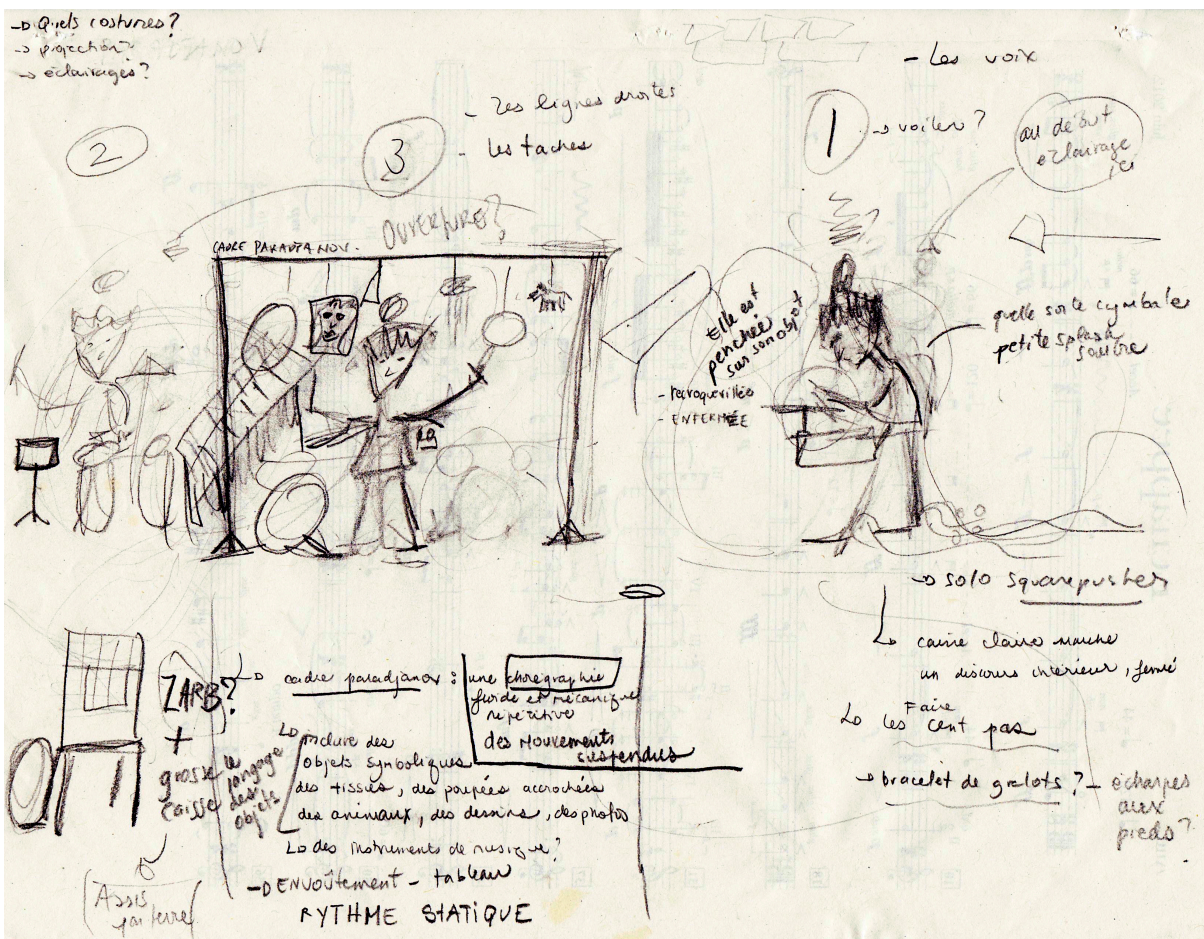 → Quels costumes?
→ projection?
→ éclairages?
2
3
- Les lignes droites
- les taches
OUVERTURE?
CADRE PARADJANOV.
- Les voix
1
→ voiler?
au début
éclairage
ici
Elle est
penchée
sur son objet
- recroquevillée
- ENFERMÉE
quelle sorte cymbale
petite splash
sombre
→ solo Squarepusher
caisse claire marche
un discours intérieur, fermé
Faire
les cent pas
→ bracelet de grelots? - écharpes
aux
pieds?
ZARB?
+
grosse
caisse
le langage
des
objets
(Assis
par terre)
cadre paradjanov : une chorégraphie
fluide et mécanique
répétitive
des mouvements
suspendus
inclure des
objets symboliques
des tissus, des poupées accrochées
des animaux, des dessins, des photos
des instruments de musique?
→ ENVOÛTEMENT - tableau
RYTHME STATIQUE